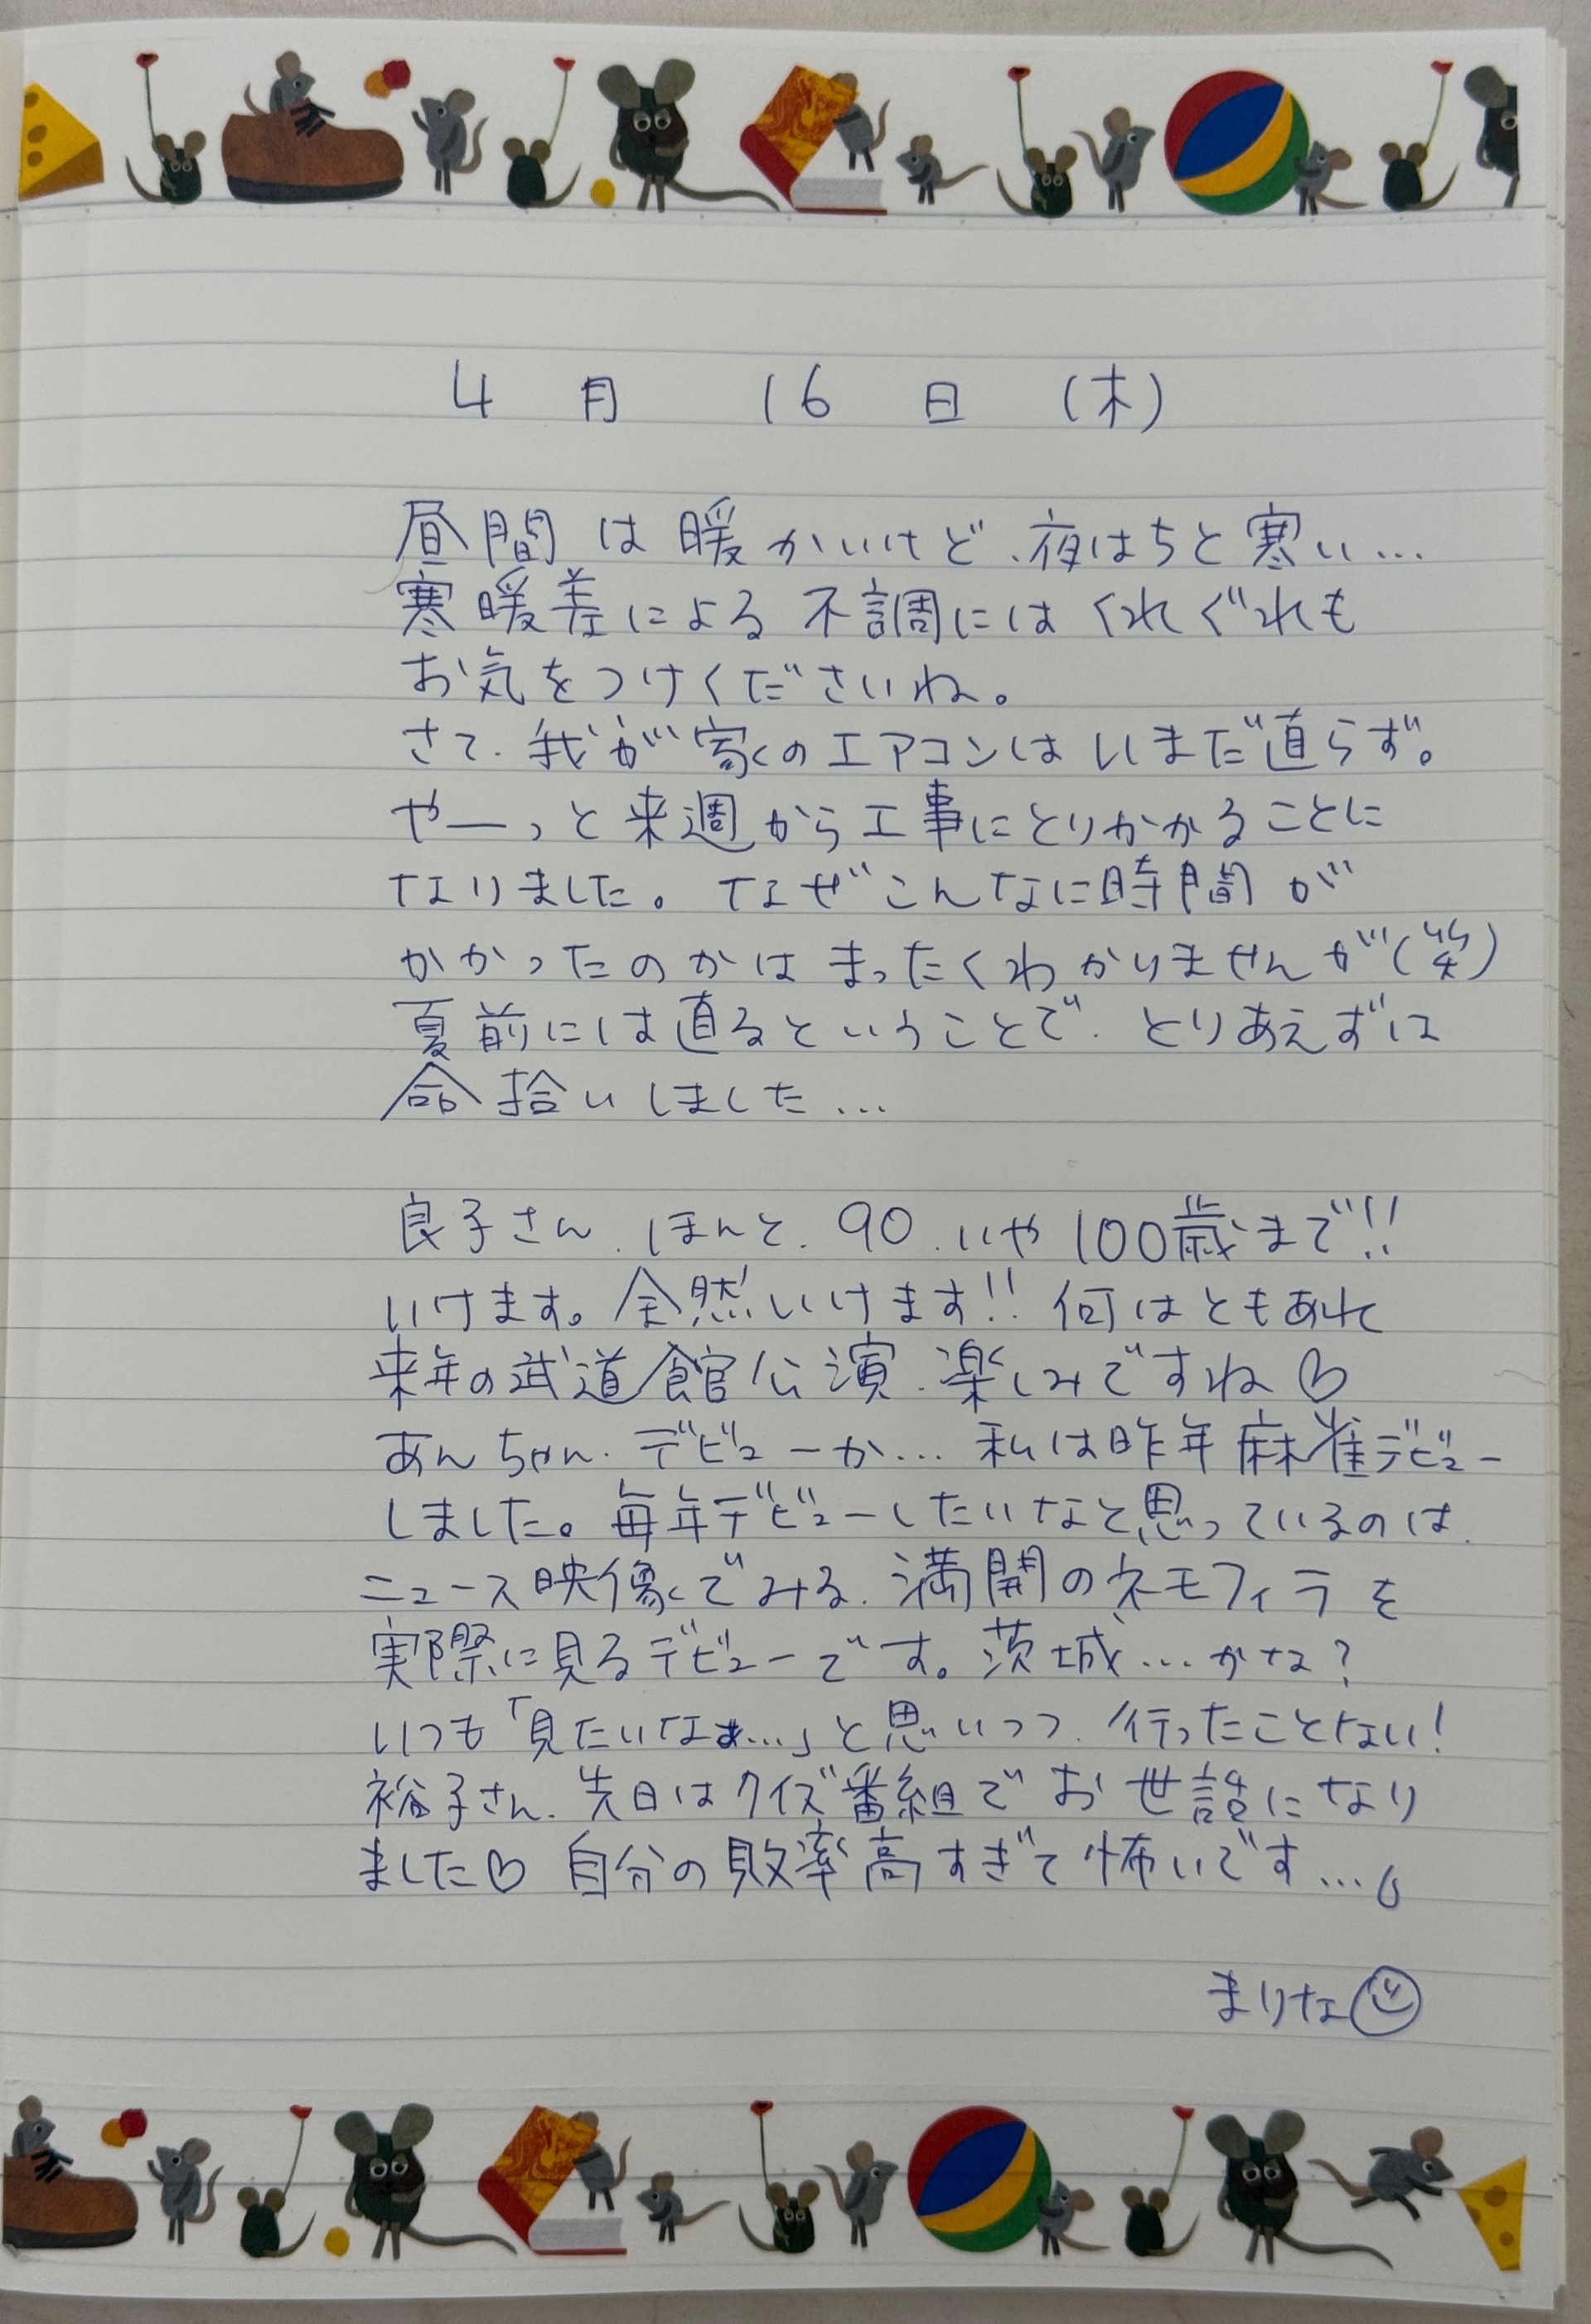 4月 16日 (木)
昼間は暖かいけど、夜はちと寒い…
寒暖差による不調にはくれぐれも
お気をつけくださいね。
さて、我が家のエアコンはいまだ直らず。
やーっと来週から工事にとりかかることに
なりました。なぜこんなに時間が
かかったのかはまったくわかりませんが(笑)
夏前には直るということで、とりあえずは
命拾いしました…
良子さん、ほんと、90、いや100歳まで!!
いけます。全然いけます!! 何はともあれ
来年の武道館公演、楽しみですね♡
あんちゃん、デビューか… 私は昨年麻雀デビュー
しました。毎年デビューしたいなと思っているのは、
ニュース映像でみる、満開のネモフィラを
実際に見るデビューです。茨城…かな?
いつも「見たいなぁ…」と思いつつ、行ったことない!
裕子さん、先日はクイズ番組でお世話になり
ました♡ 自分の敗率高すぎて怖いです…
まりな